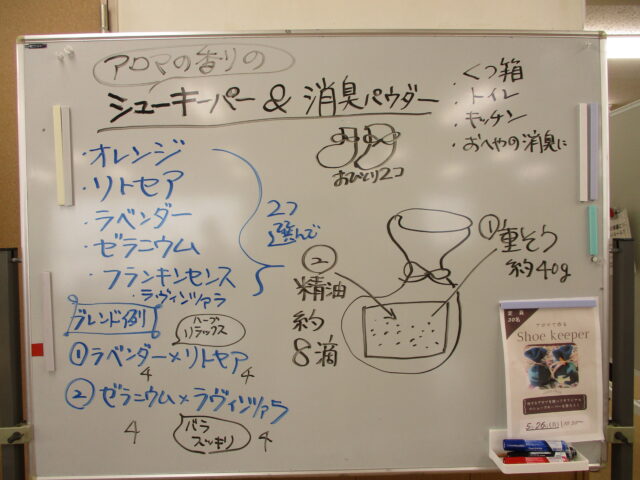 アロマの香りの
シューキーパー & 消臭パウダー
・くつ箱
・トイレ
・キッチン
・おへやの消臭に
おひとり2コ
・オレンジ
・リトセア
・ラベンダー
・ゼラニウム
・フランキンセンス
・ラヴィンツァラ
2コ
選んで
ブレンド例
ハーブ
リラックス
①ラベンダー×リトセア
4 4
②ゼラニウム×ラヴィンツァラ
4 4
バラ
スッキリ
①重そう
約40g
②
精油
約
8滴
定員
30名
アロマで作る
Shoe keeper
5.26.(日)